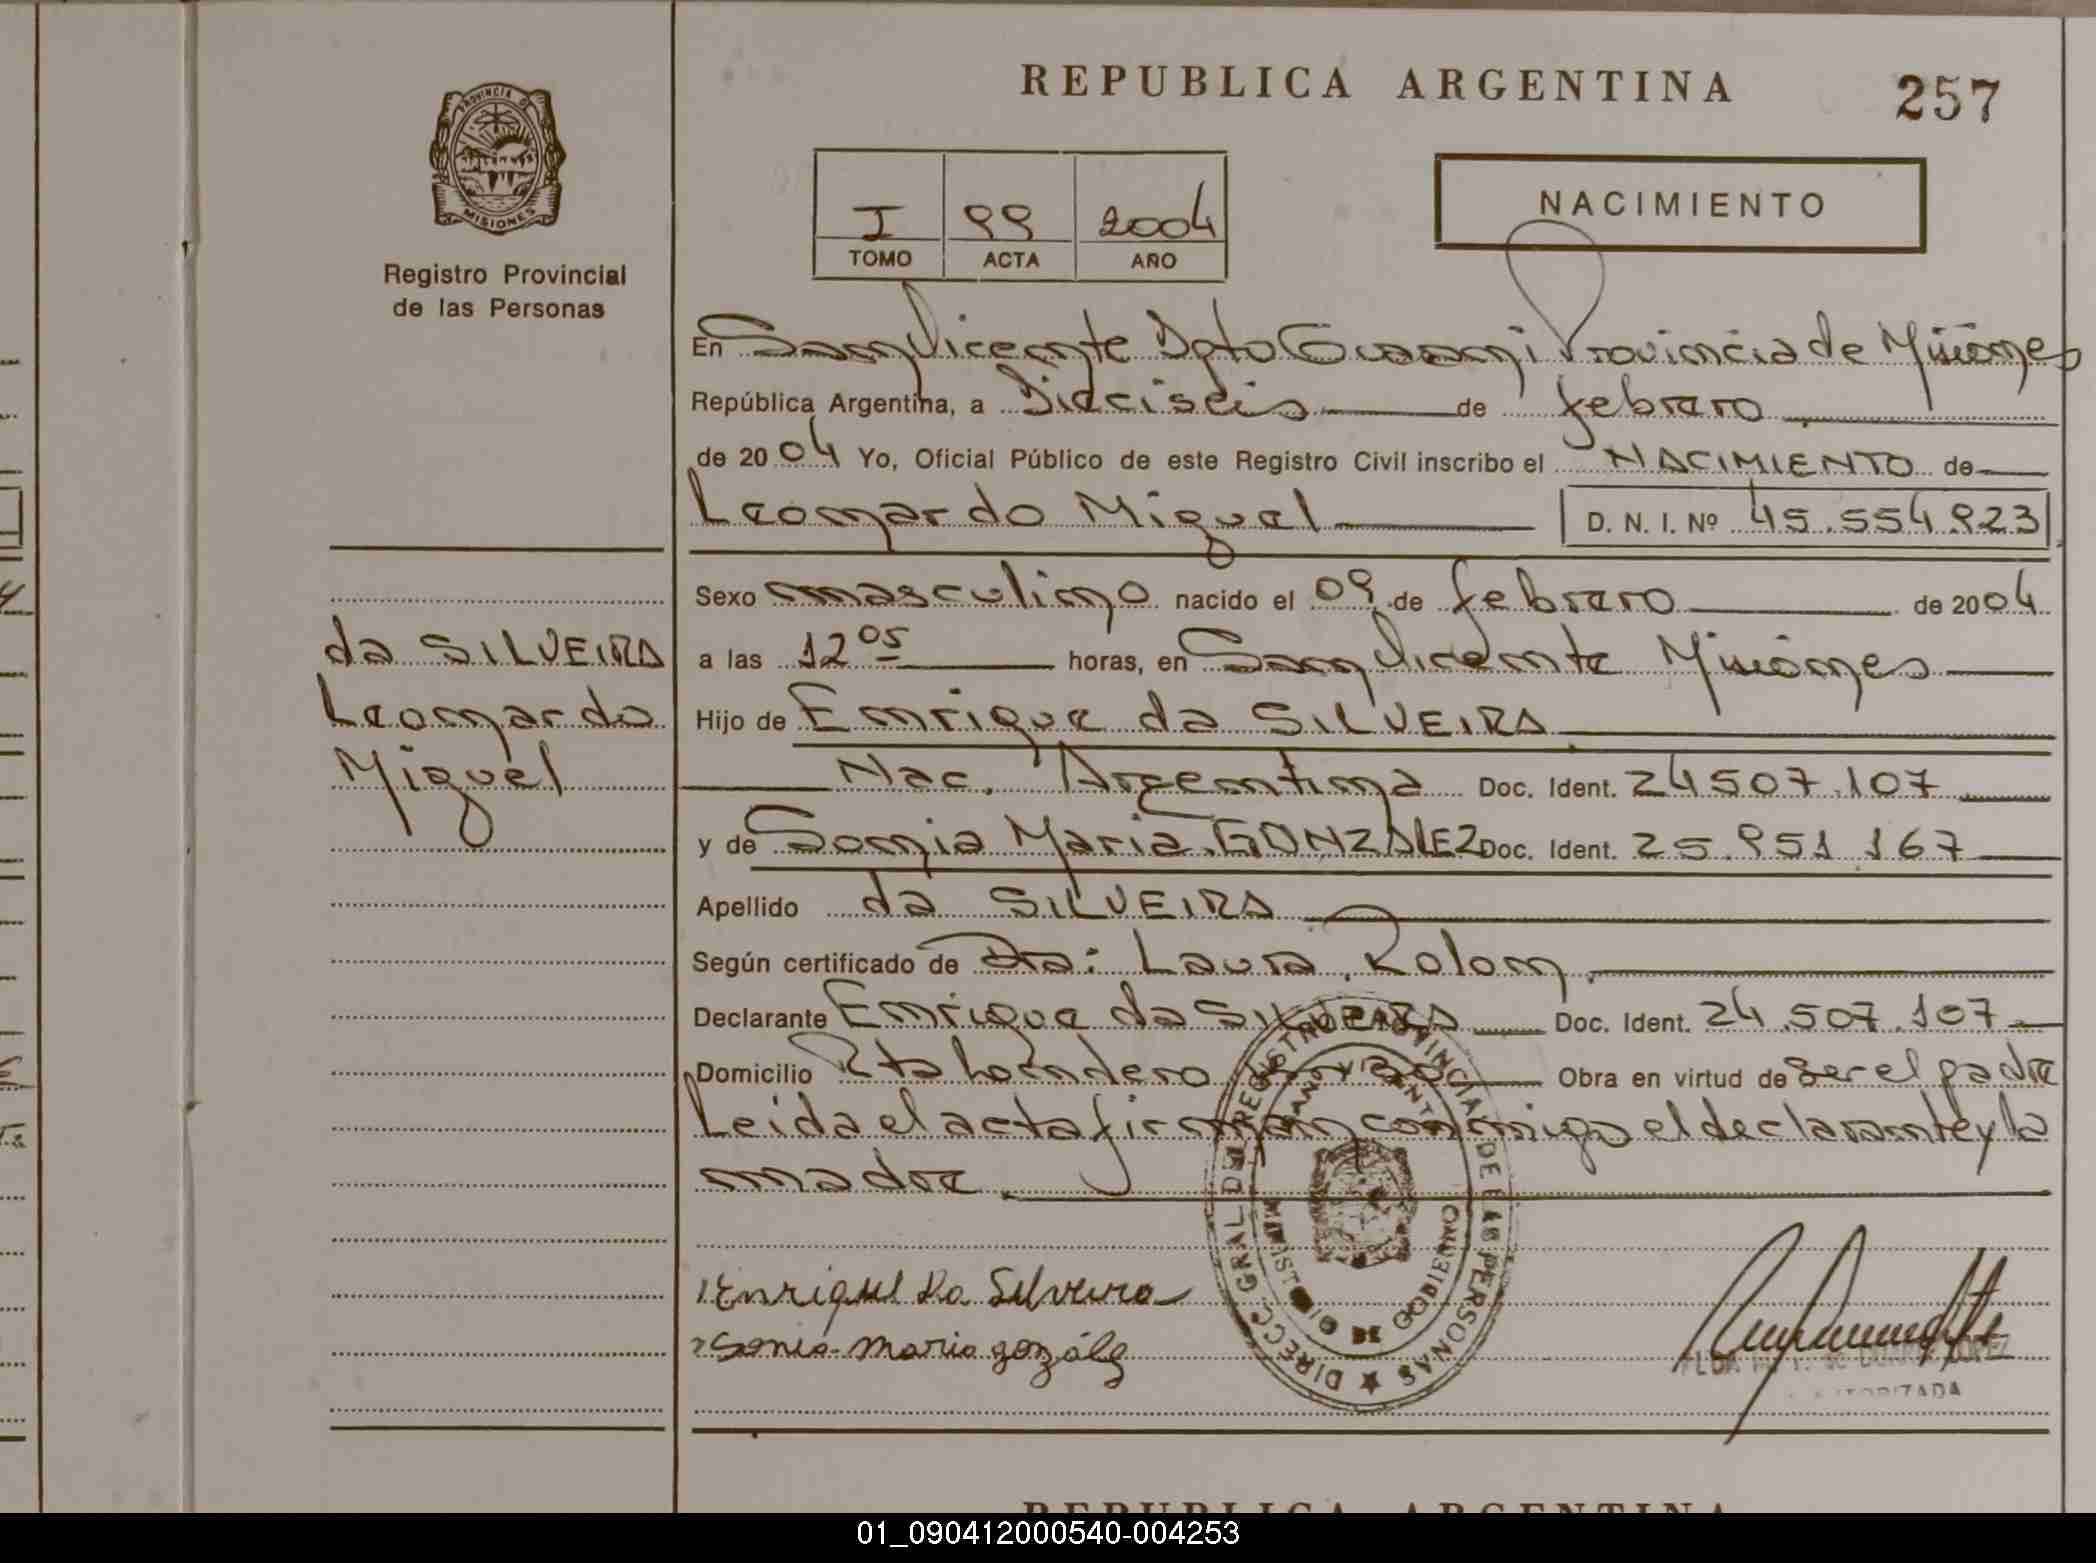 REPUBLICA ARGENTINA
257
PROVINCIA DE
MISIONES
Registro Provincial
de las Personas
I 99 2004
TOMO ACTA AÑO
NACIMIENTO
En San Vicente Dpto Guaraní Provincia de Misiones
República Argentina, a Dieciseis de febrero
de 2004 Yo, Oficial Público de este Registro Civil inscribo el NACIMIENTO de
Leonardo Miguel D. N. I. Nº 45.554.923
Sexo masculino nacido el 09 de febrero de 2004
da SILVEIRA
Leonardo
Miguel
a las 12 05 horas, en San Vicente Misiones
Hijo de Enrique da SILVEIRA
Nac. Argentina Doc. Ident. 24507.107
y de Sonia Maria GONZALEZ Doc. Ident. 25.951.167
Apellido da SILVEIRA
Según certificado de Dra: Laura Rolon
Declarante Enrique da SILVEIRA Doc. Ident. 24.507.107
Domicilio Rta Obra en virtud de ser el padre
Leida el acta firman conmigo el declarante y la
madre.
DIRECC. GRAL DEL REGISTRO PROVINCIAL DE LAS PERSONAS
SAN VICENTE
MINISTERIO DE GOBIERNO
Enrique Da Silveira
Sonia Maria gonzález
AUTORIZADA
REPUBLICA ARGENTINA
01_090412000540-004253